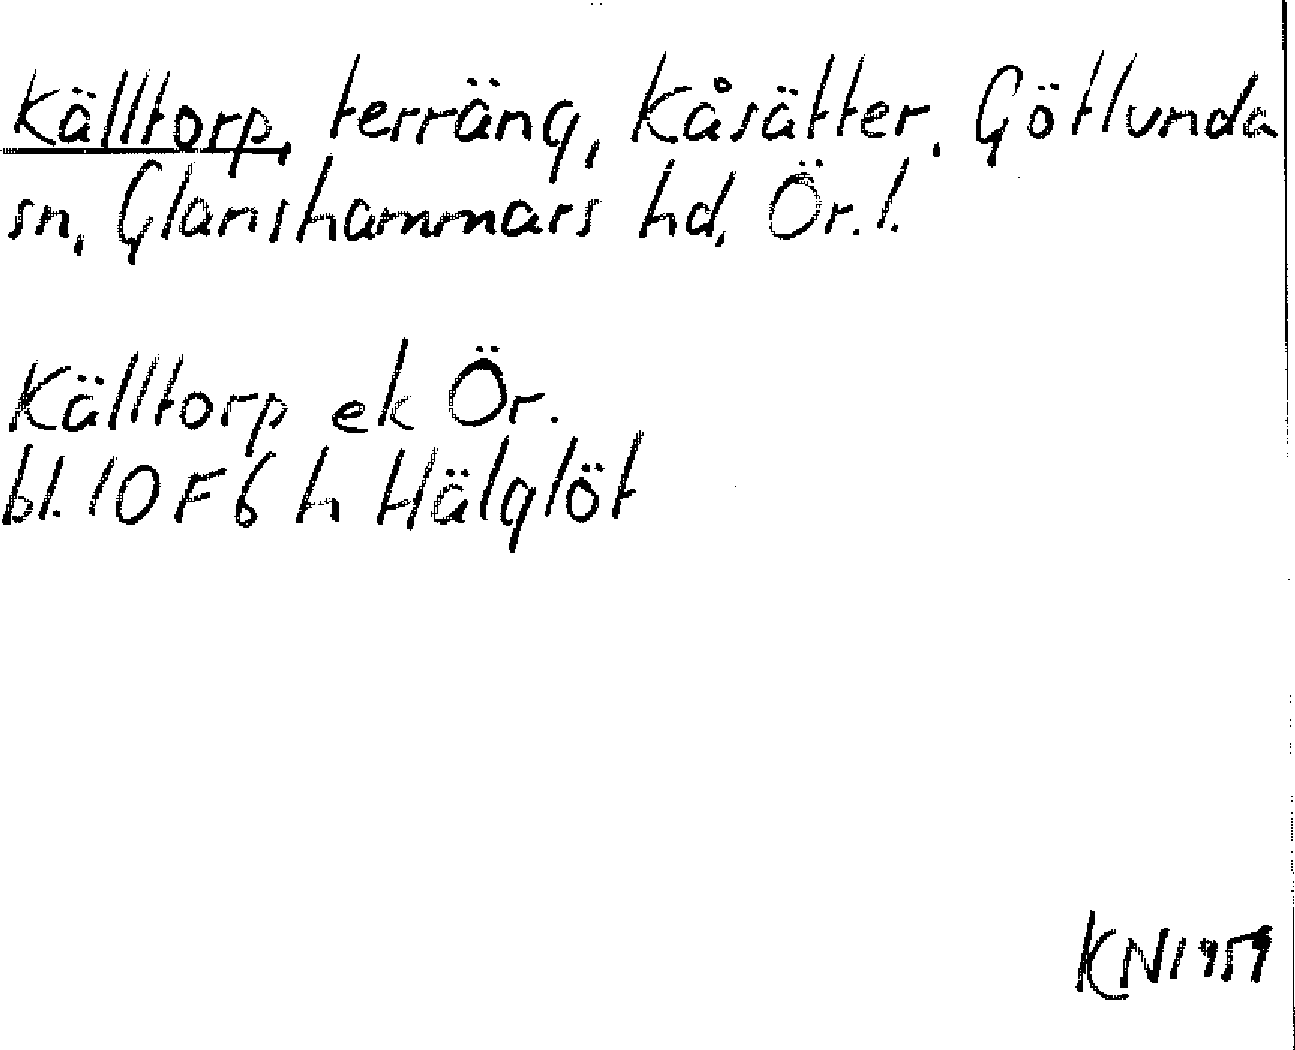 Källtorp, terräng, Kåsätter, Götlunda
sn, Glanshammars hd, Ör. l.
Källtorp ek Ör.
bl. 10 F 6 h Hälglöt
KN 1959